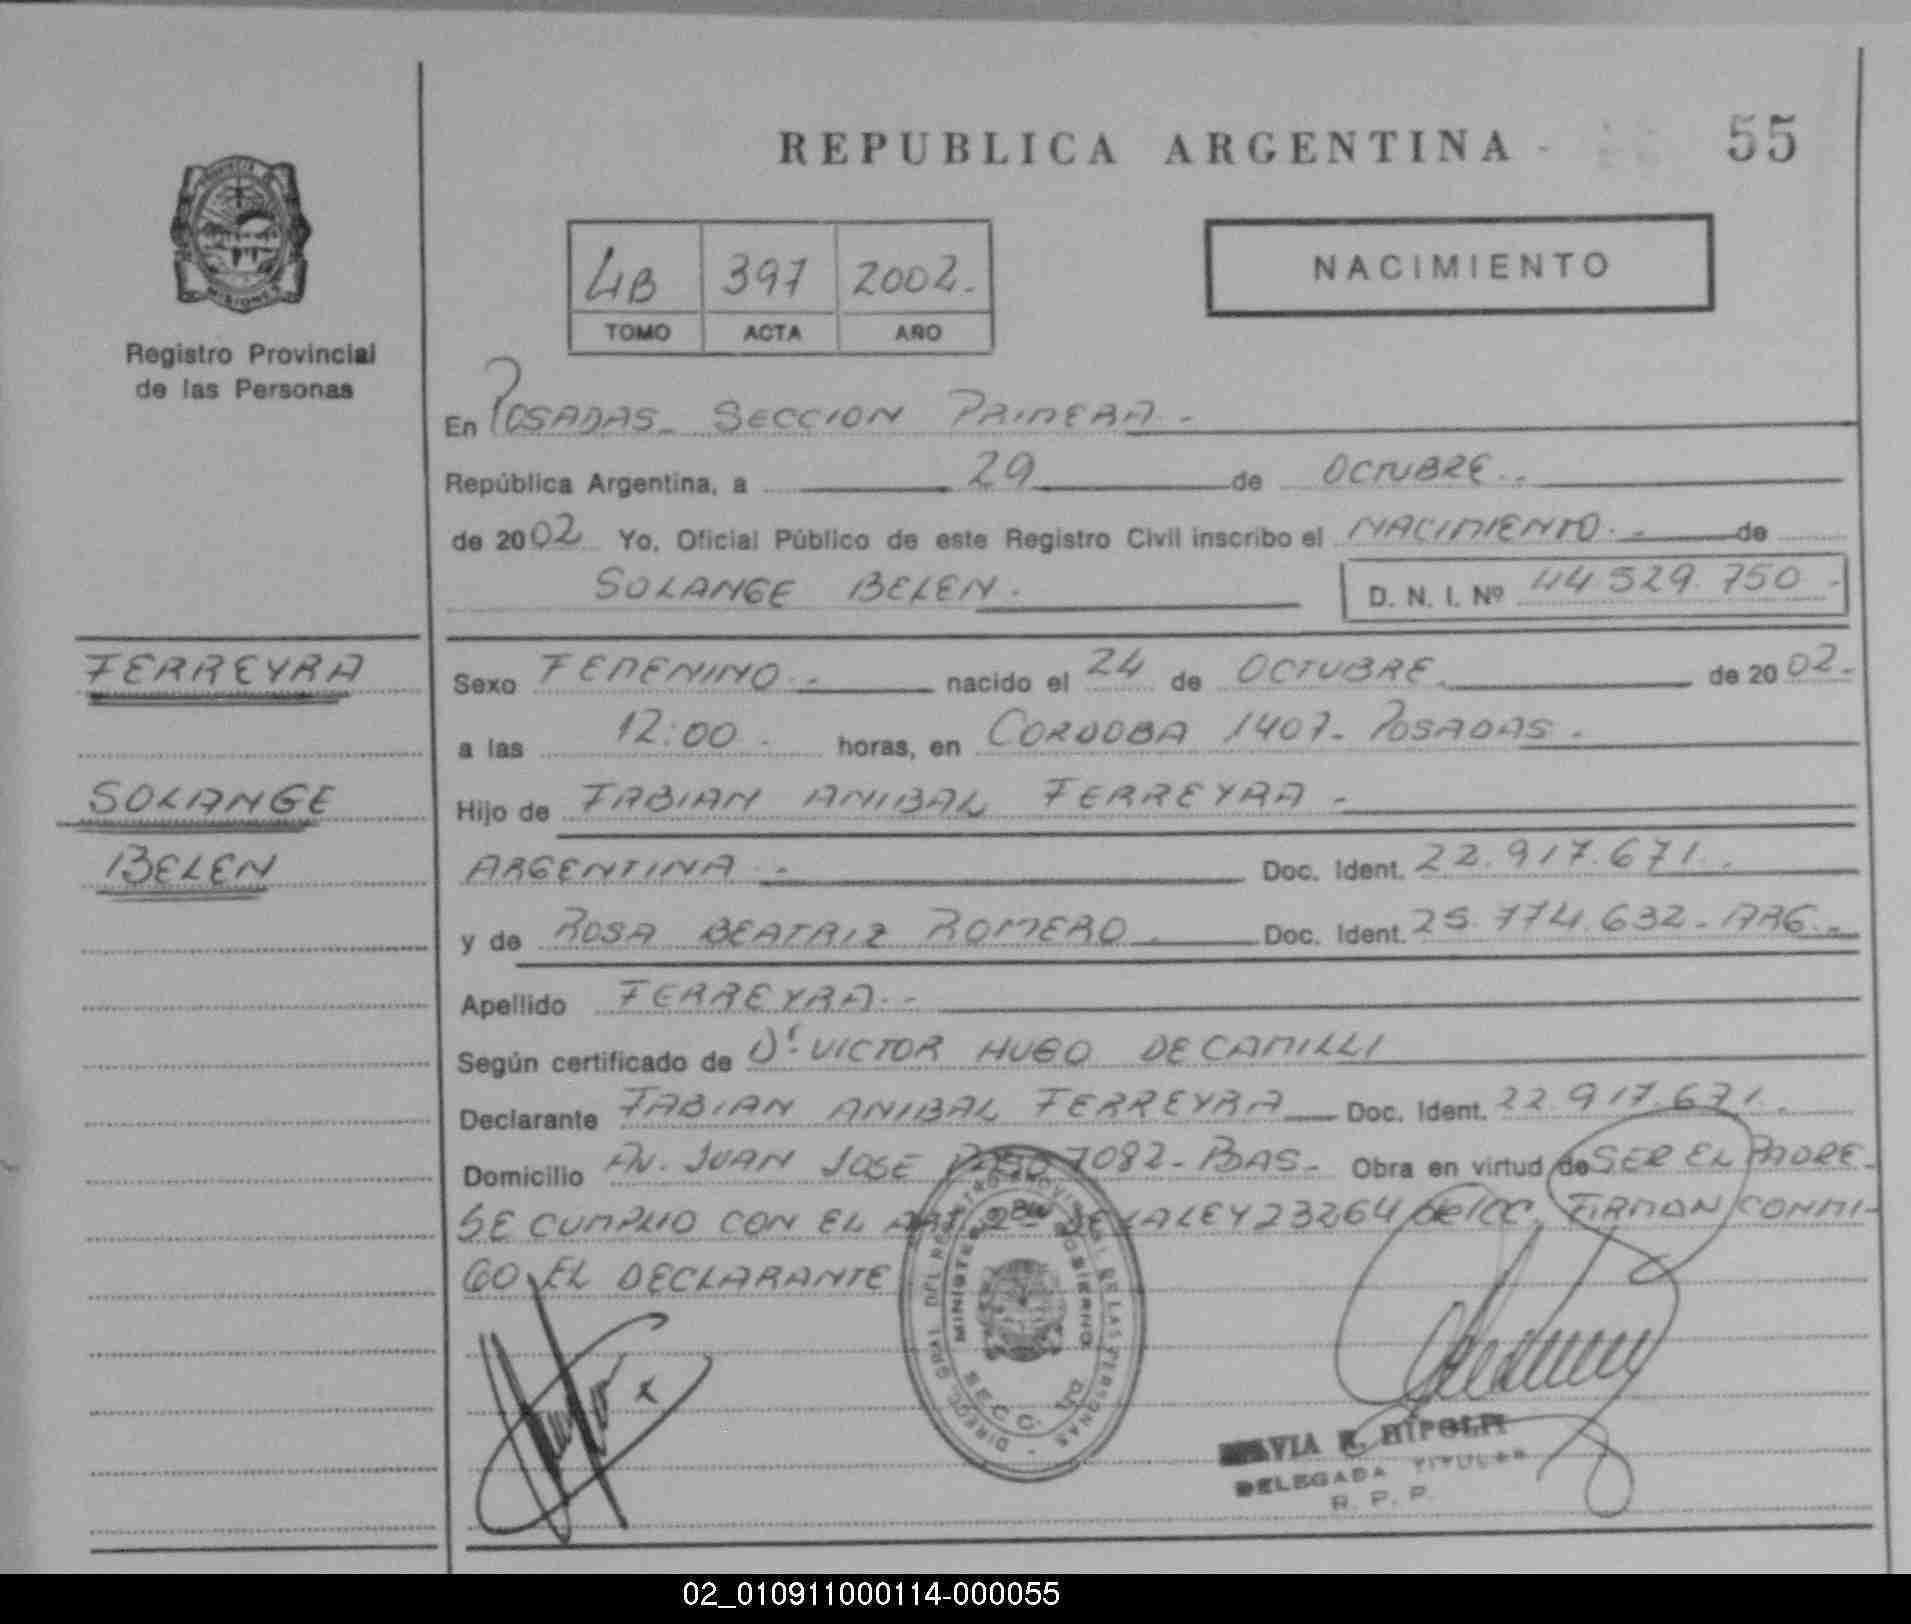 REPUBLICA ARGENTINA
55
MISIONES
Registro Provincial
de las Personas
4B 397 2002.
TOMO ACTA AÑO
NACIMIENTO
En POSADAS- SECCION PRIMERA.-
República Argentina, a 29 de OCTUBRE.-
de 2002 Yo, Oficial Público de este Registro Civil inscribo el NACIMIENTO.- de
SOLANGE BELEN.
D. N. I. Nº 44.529.750.-
FERREYRA
Sexo FEMENINO.- nacido el 24 de OCTUBRE. de 2002.-
a las 12:00. horas, en CORDOBA 1407- POSADAS.
SOLANGE
Hijo de FABIAN ANIBAL FERREYRA.-
BELEN
ARGENTINA.- Doc. Ident. 22.917.671.
y de ROSA BEATRIZ ROMERO. Doc. Ident. 25.774.632- ARG.-
Apellido FERREYRA.-
Según certificado de Dr. VICTOR HUGO DECAMILLI
Declarante FABIAN ANIBAL FERREYRA Doc. Ident. 22.917.671.
Domicilio AV. JUAN JOSE PASO 7082- PDAS- Obra en virtud de SER EL PADRE-
SE CUMPLIO CON EL ART. DE LA LEY 23264 del CC. FIRMAN CONMI-
GO EL DECLARANTE
DIRECC. GRAL. DEL REGISTRO PROVINCIAL DE LAS PERSONAS
MINISTERIO DE GOBIERNO
SECC.
DELEGADA TITULAR
R. P. P.
02_010911000114-000055